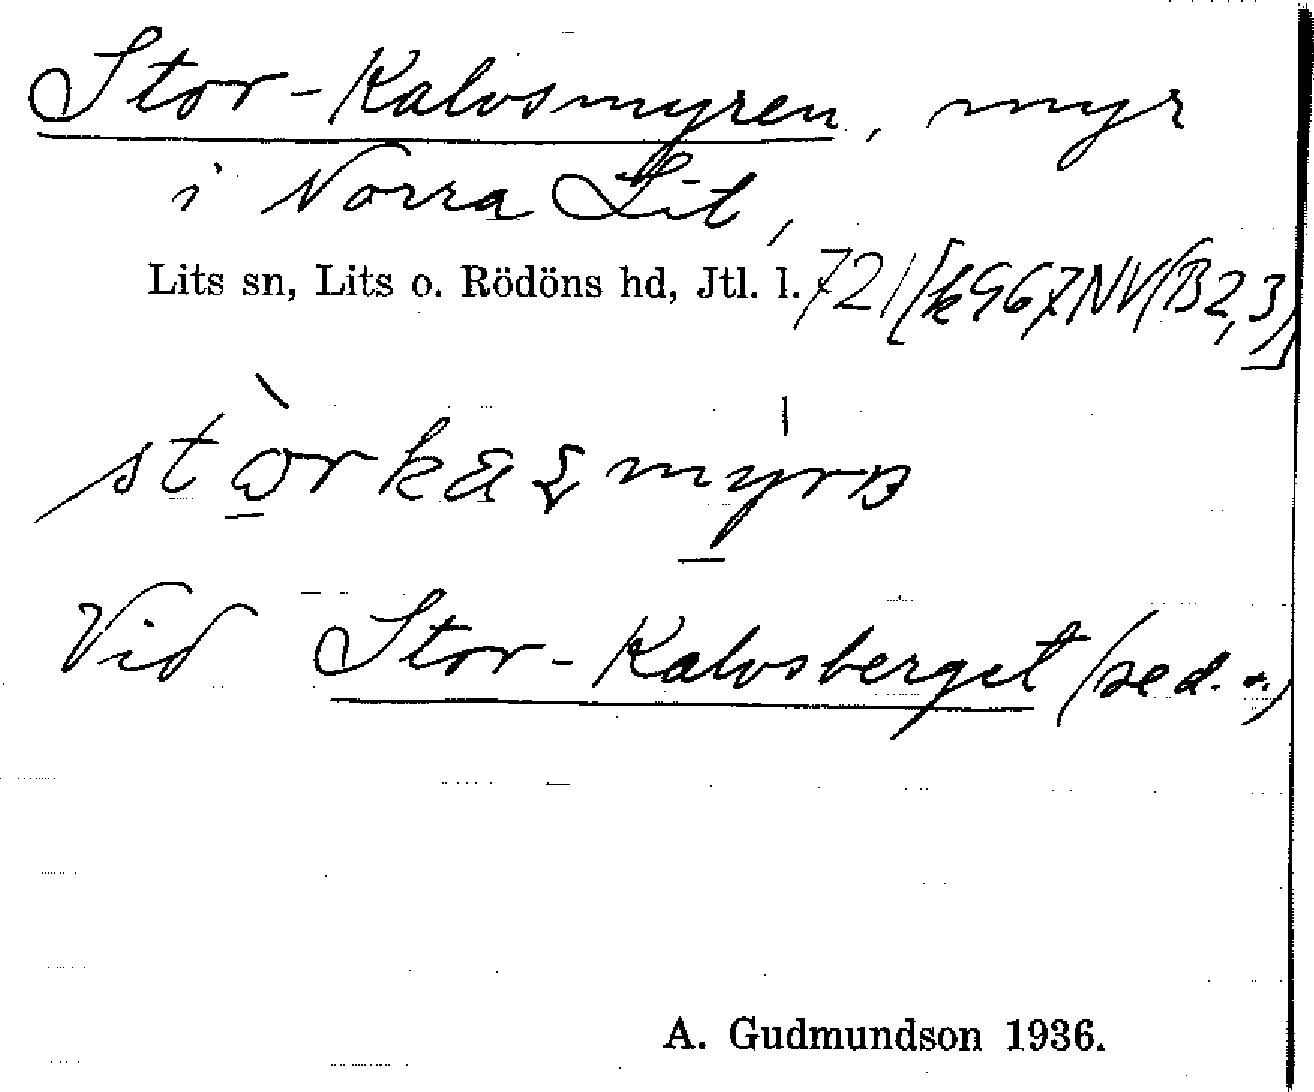 Stor-Kalvsmyren, myr
i Norra Lit,
Lits sn, Lits o. Rödöns hd, Jtl. l. 721/[k 967 NV(B2,3)]
Vid Stor-Kalvsberget (se d. o.)
A. Gudmundson 1936.